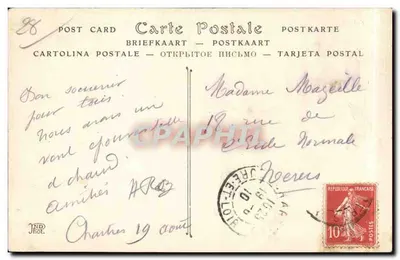 28
POST CARD Carte Postale POSTKARTE
BRIEFKAART — POSTKAART
CARTOLINA POSTALE — ОТКРЫТОЕ ПИСЬМО — TARJETA POSTAL
Bon souvenir
pour tous
nous avons un
vent épouvantable
d chaud
amitiés
Chartres 19 août
Madame Mazeille
19 rue de
l'Ecole Normale
Nevers
EURE-ET-LOIR
REPUBLIQUE FRANÇAISE
10
ND